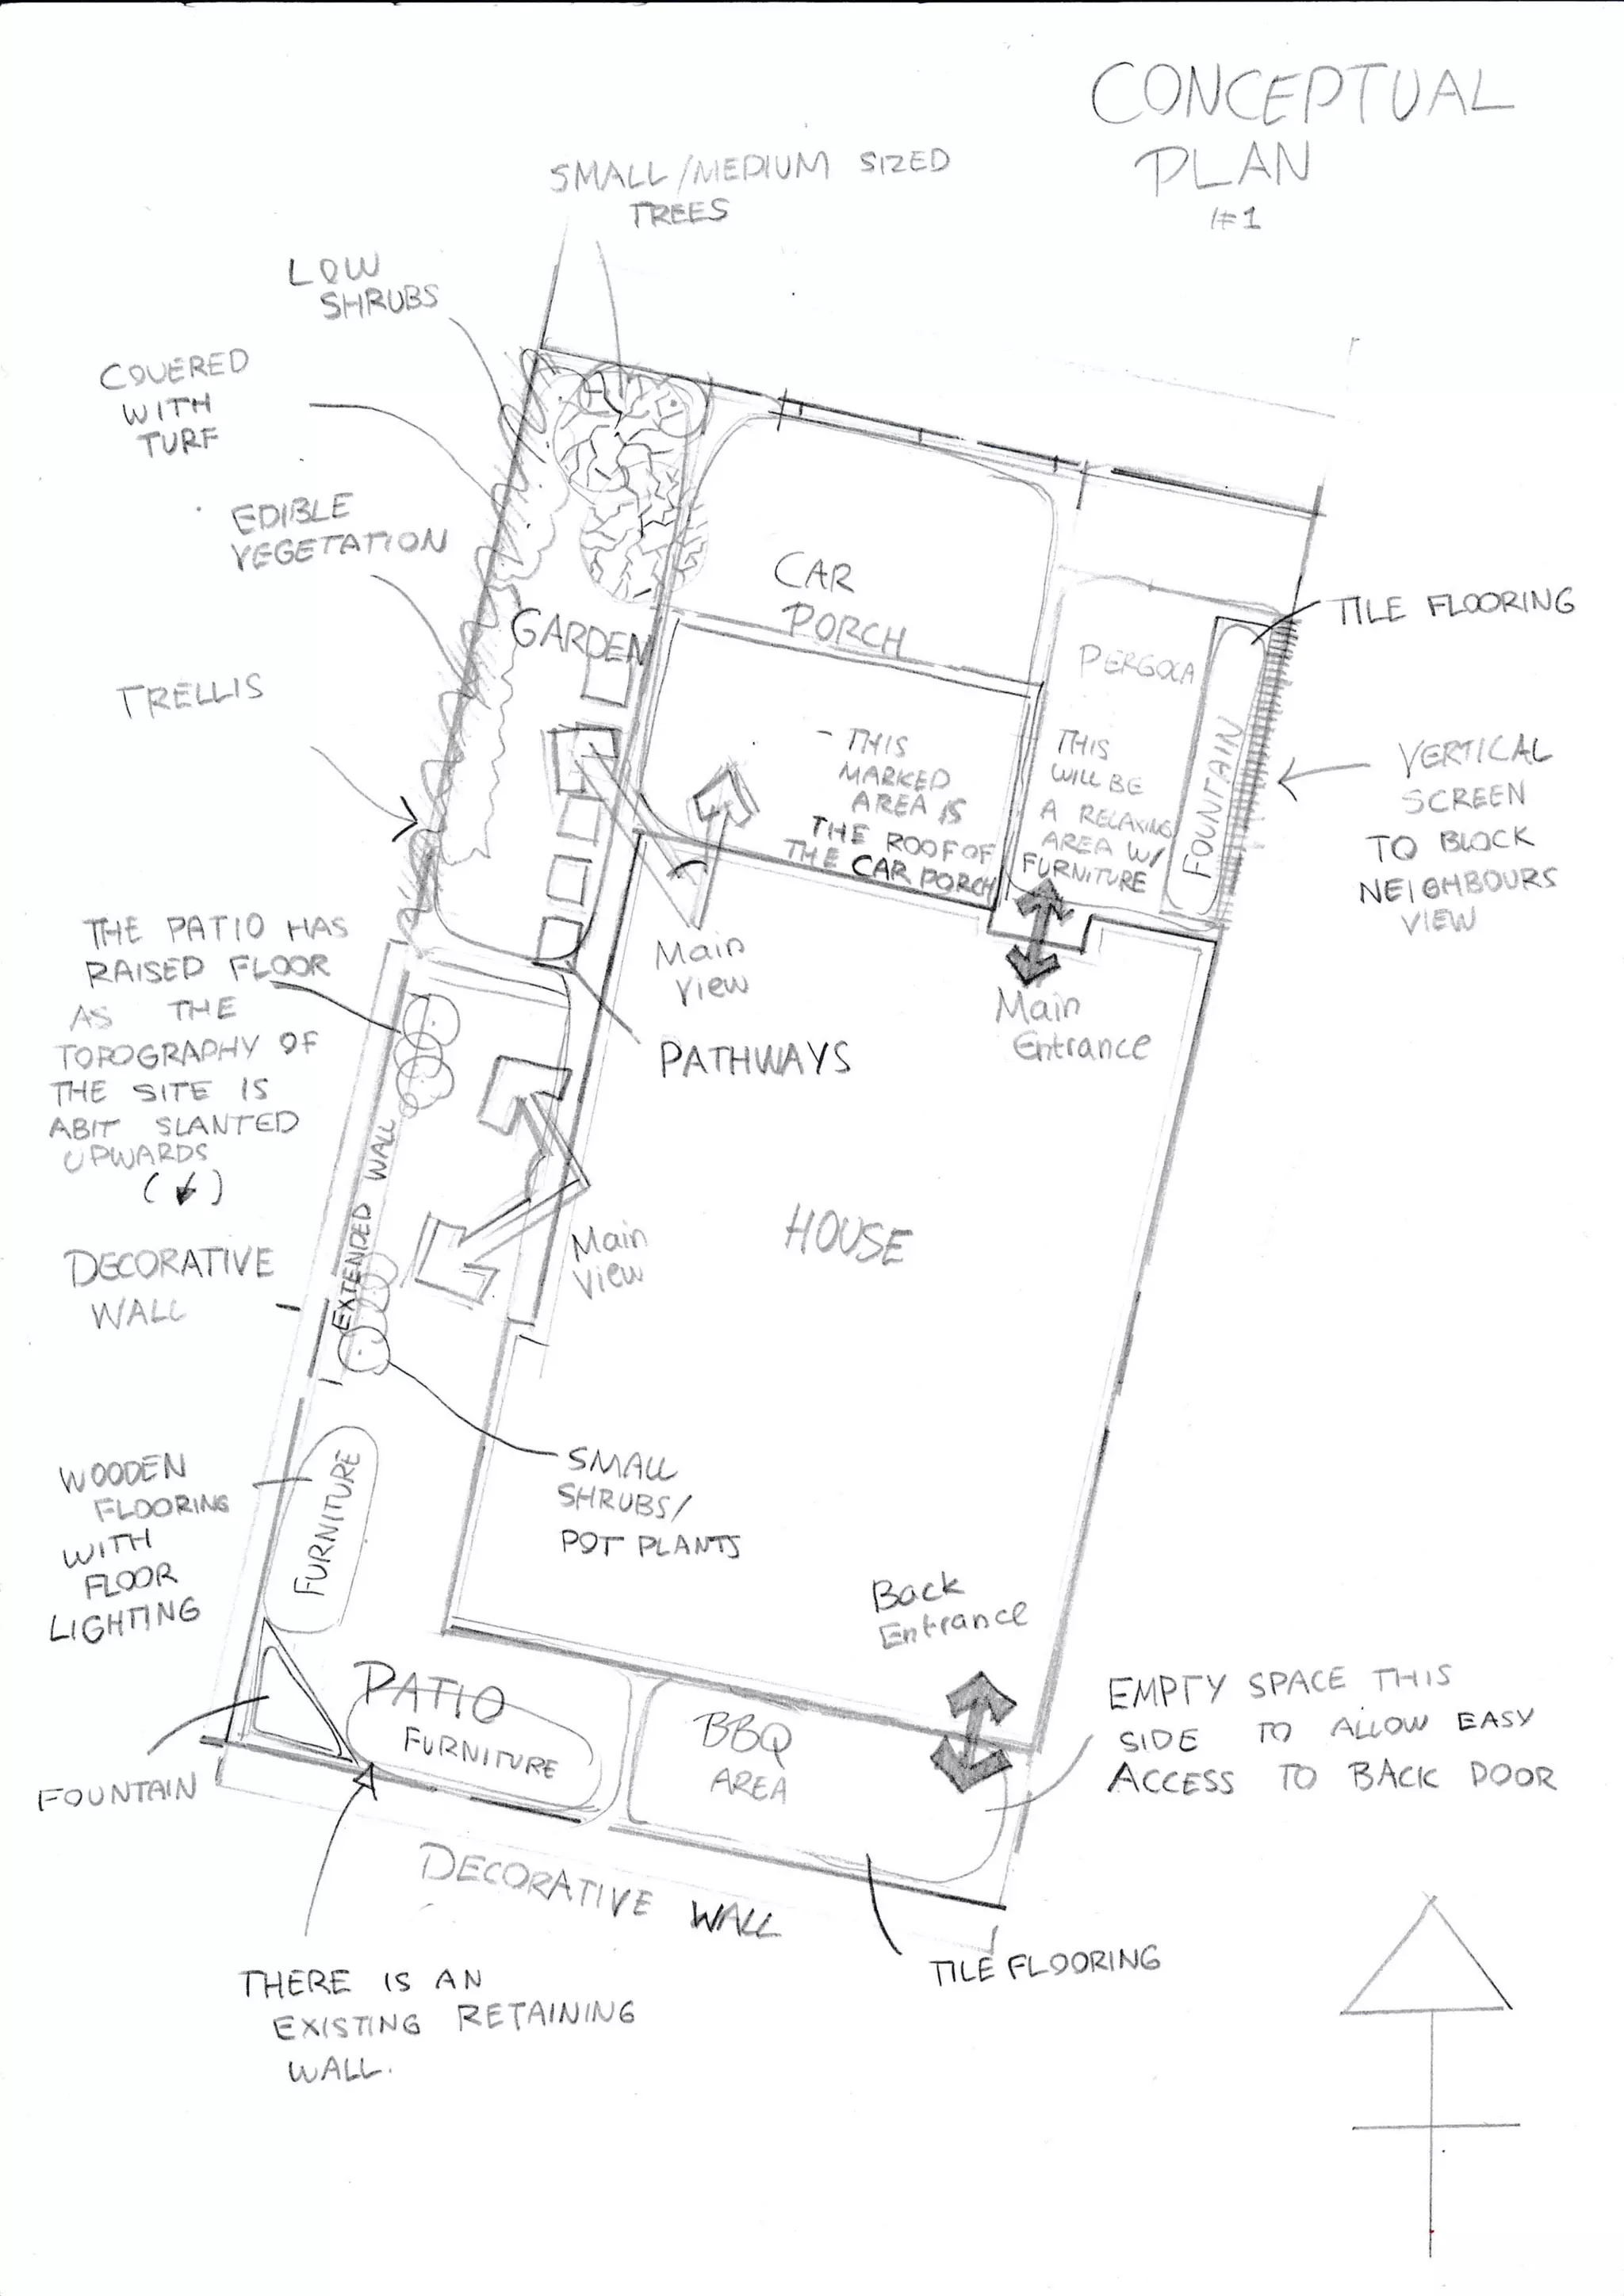 CONCEPTUAL
PLAN
#1
SMALL/MEDIUM SIZED
TREES
LOW
SHRUBS
COVERED
WITH
TURF
EDIBLE
VEGETATION
TRELLIS
GARDEN
CAR
PORCH
- THIS
MARKED
AREA IS
THE ROOF OF
THE CAR PORCH
PERGOLA
THIS
WILL BE
A RELAXING
AREA W/
FURNITURE
FOUNTAIN
TILE FLOORING
VERTICAL
SCREEN
TO BLOCK
NEIGHBOURS
VIEW
Main
View
Main
Entrance
PATHWAYS
THE PATIO HAS
RAISED FLOOR
AS THE
TOPOGRAPHY OF
THE SITE IS
ABIT SLANTED
UPWARDS
(↓)
EXTENDED WALL
DECORATIVE
WALL
Main
View
HOUSE
WOODEN
FLOORING
WITH
FLOOR
LIGHTING
FURNITURE
SMALL
SHRUBS/
POT PLANTS
Back
Entrance
PATIO
FURNITURE
BBQ
AREA
EMPTY SPACE THIS
SIDE TO ALLOW EASY
ACCESS TO BACK DOOR
FOUNTAIN
DECORATIVE WALL
TILE FLOORING
THERE IS AN
EXISTING RETAINING
WALL.